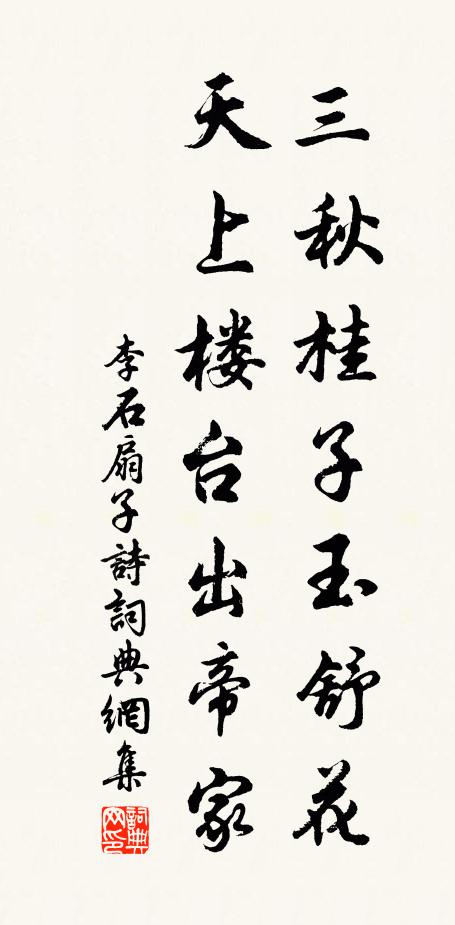 三秋桂子玉舒花
天上楼台出帝家
李石扇子詩詞典網集
詞典網印